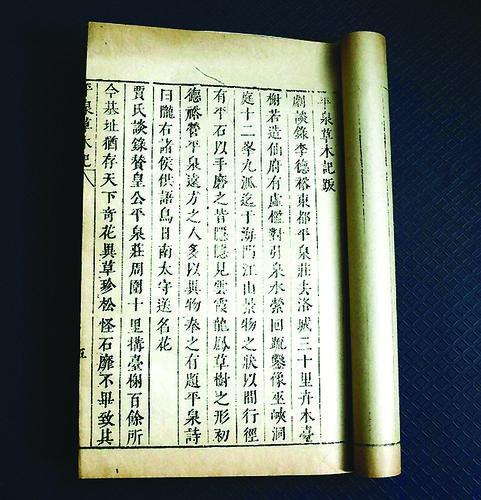 平泉草木記跋
劇談錄李德裕東都平泉莊去洛城三十里卉木臺
榭若造仙府有虛檻對引泉水縈回疏鑿像巫峽洞
庭十二峯九派迄于海門江山景物之狀以間行徑
有平石以手磨之皆隱隱見雲霞龍鳳草樹之形初
德裕營平泉遠方之人多以異物奉之有題平泉詩
曰隴右諸侯供語鳥日南太守送名花
賈氏談錄贊皇公平泉莊周圍十里搆臺榭百餘所
今基址猶存天下奇花異草珍松怪石靡不畢致其
平泉草木記
五